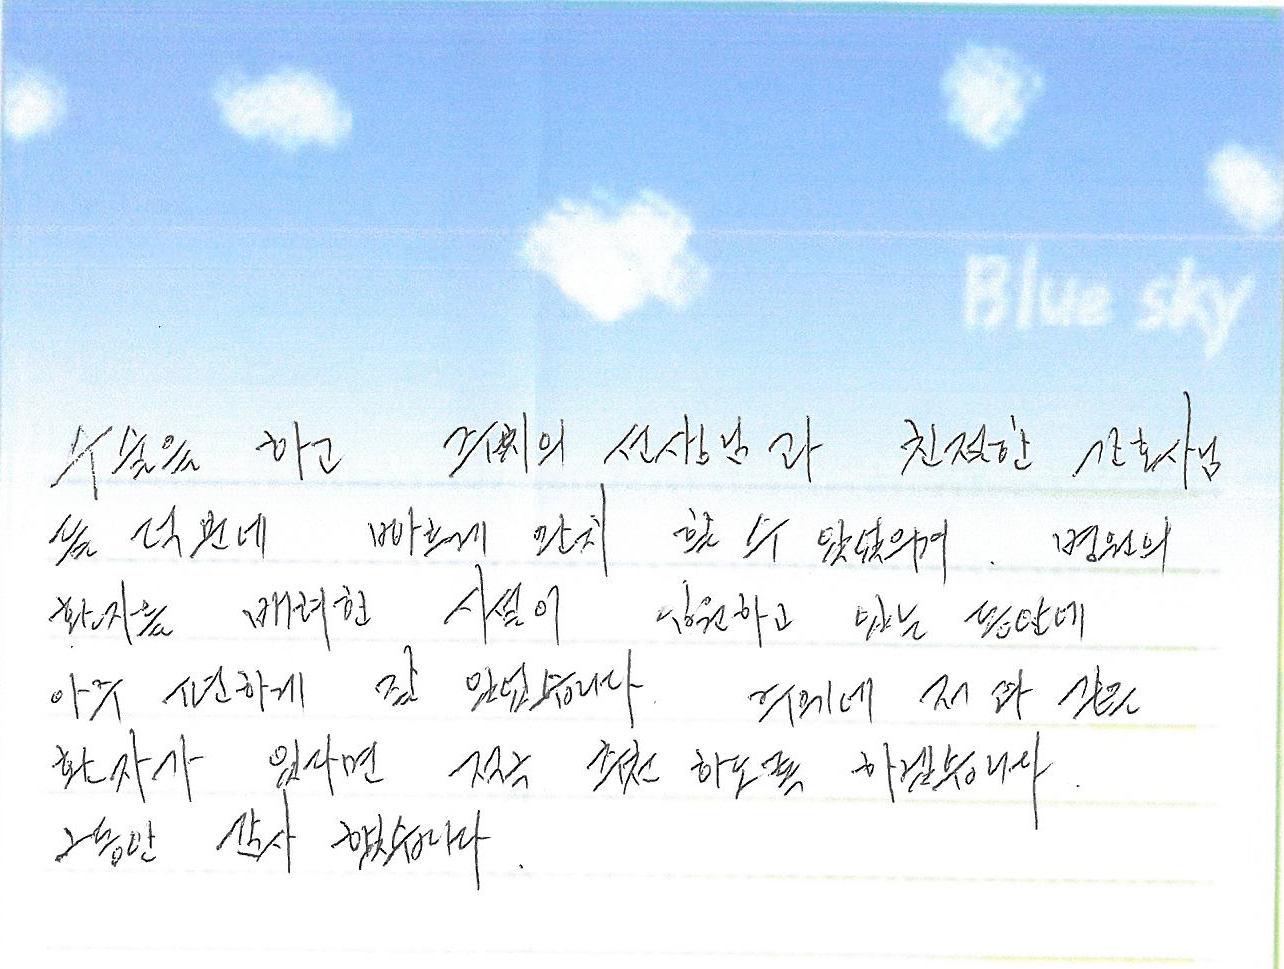 Blue sky
수술을 하고 주치의 선생님과 친절한 간호사님
들 덕분에 빠르게 완치 할 수 있었으며. 병원의
환자를 배려한 시설이 입원하고 있는 동안에
아주 편하게 잘 있었습니다. 주위에 저와 같은
환자가 있다면 적극 추천 하도록 하겠습니다.
그동안 감사 했습니다.